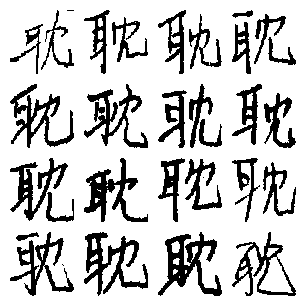 耽耽耽耽
耽耽耽耽
耽耽耽耽
耽耽耽耽